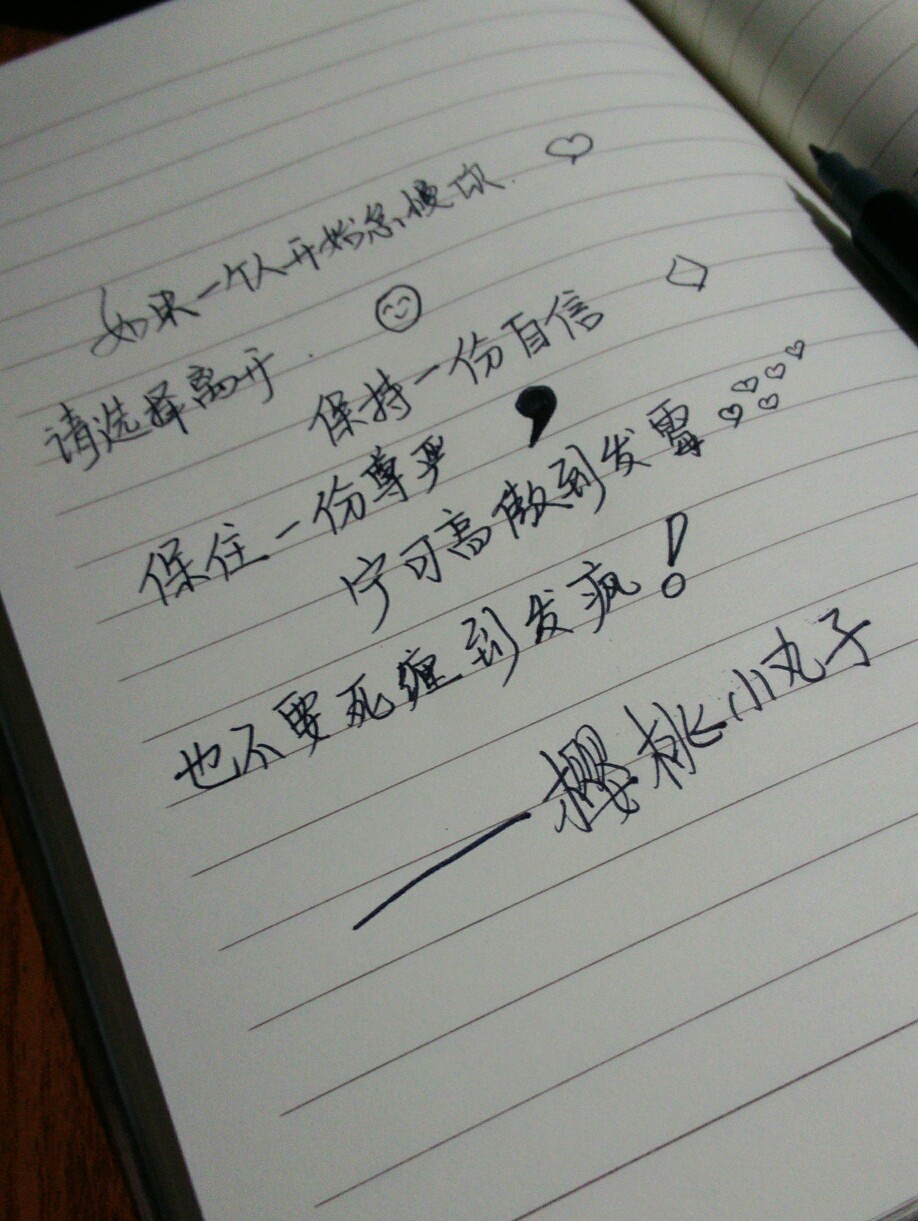 如果一个人开始怠慢你.
请选择离开.
保持一份自信
保住一份尊严,
宁可高傲到发霉
也不要死缠到发疯!
—樱桃小丸子